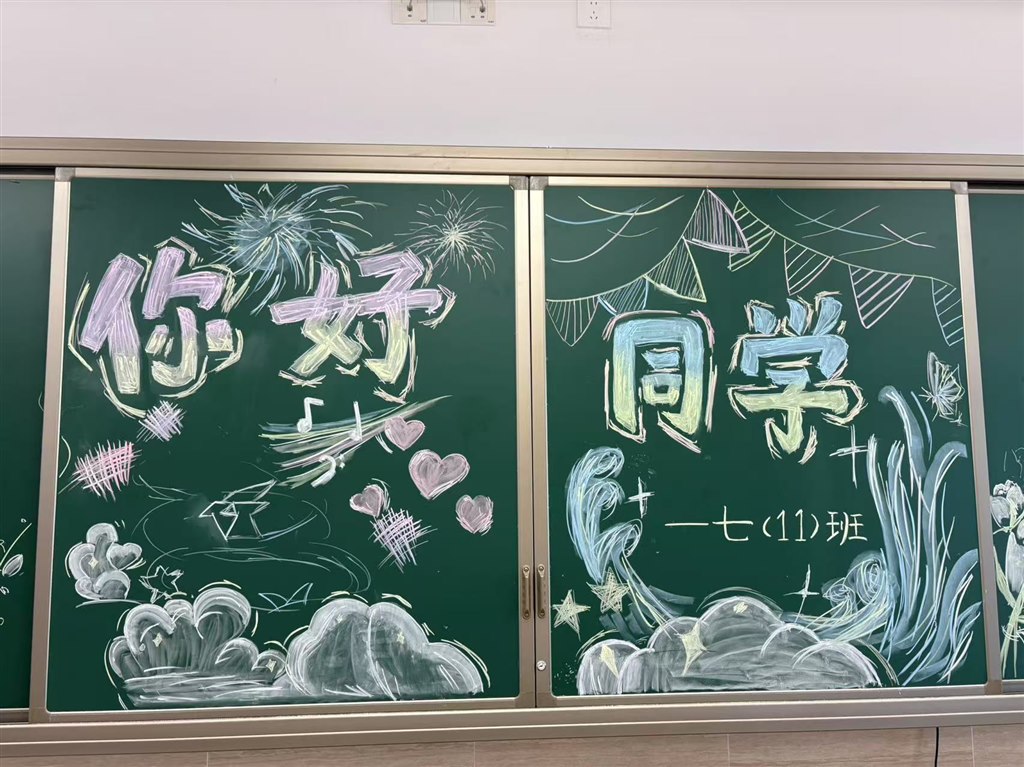 你好
同学
一七(11)班